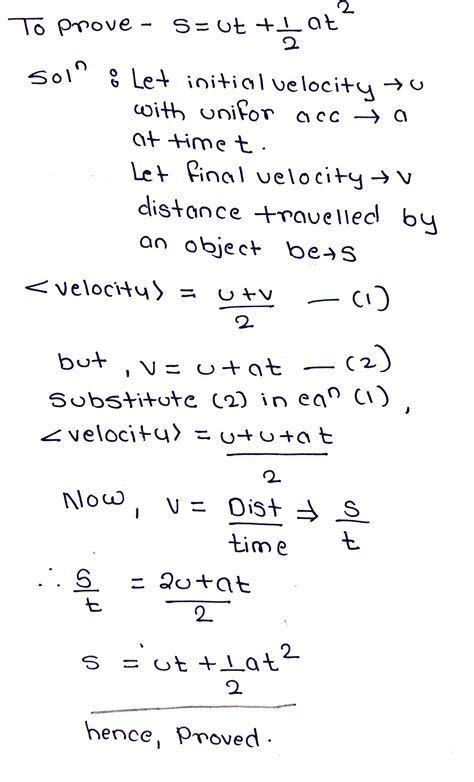 To prove - s = ut + 1/2 at²
Solⁿ : Let initial velocity → u
with unifor acc → a
at time t.
Let final velocity → v
distance travelled by
an object be → s
<velocity> = (u+v)/2 — (1)
but, v = u + at — (2)
Substitute (2) in eqⁿ (1),
<velocity> = (u+u+at)/2
Now, v = Dist/time ⇒ s/t
∴ s/t = (2u+at)/2
s = ut + 1/2 at²
hence, Proved.